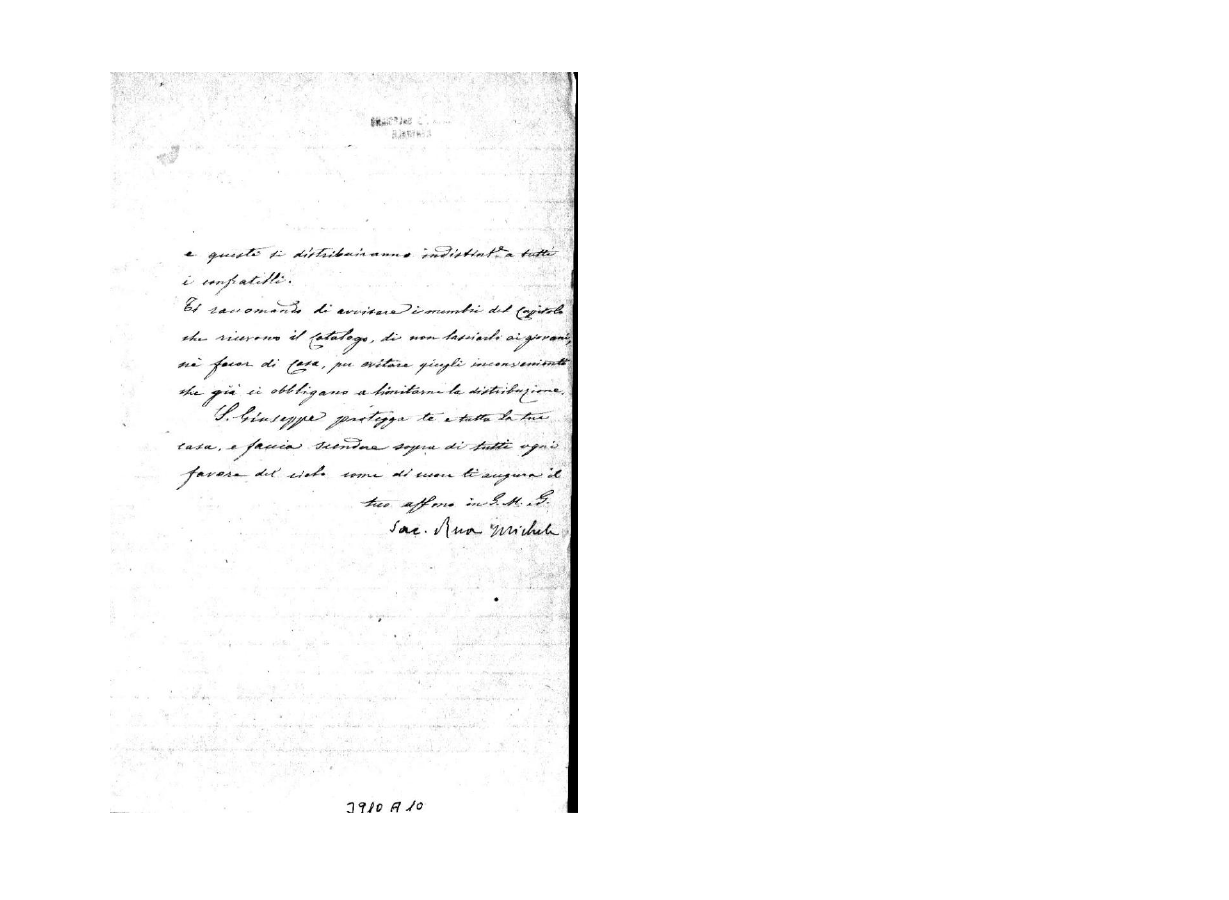 e questi si distribuiranno indistint.e a tutti
i confratelli.
Ti raccomando di avvisare i membri del Capitolo
che ricevono il Catalogo, di non lasciarlo ai giovani,
nè fuor di Casa, per evitare quegli inconvenienti
che già ci obbligano a limitarne la distribuzione.
S. Giuseppe protegga te e tutta la tua
casa, e faccia scendere sopra di tutti ogni
favore del cielo come di cuore ti augura il
tuo affmo in G. M. G.
Sac. Rua Michele
3910 A 10